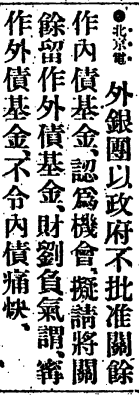 ●北京電　外銀團以政府不批准關餘
作內債基金、認爲機會、擬請將關
餘留作外債基金、財劉負氣謂、寗
作外債基金、不令內債痛快、